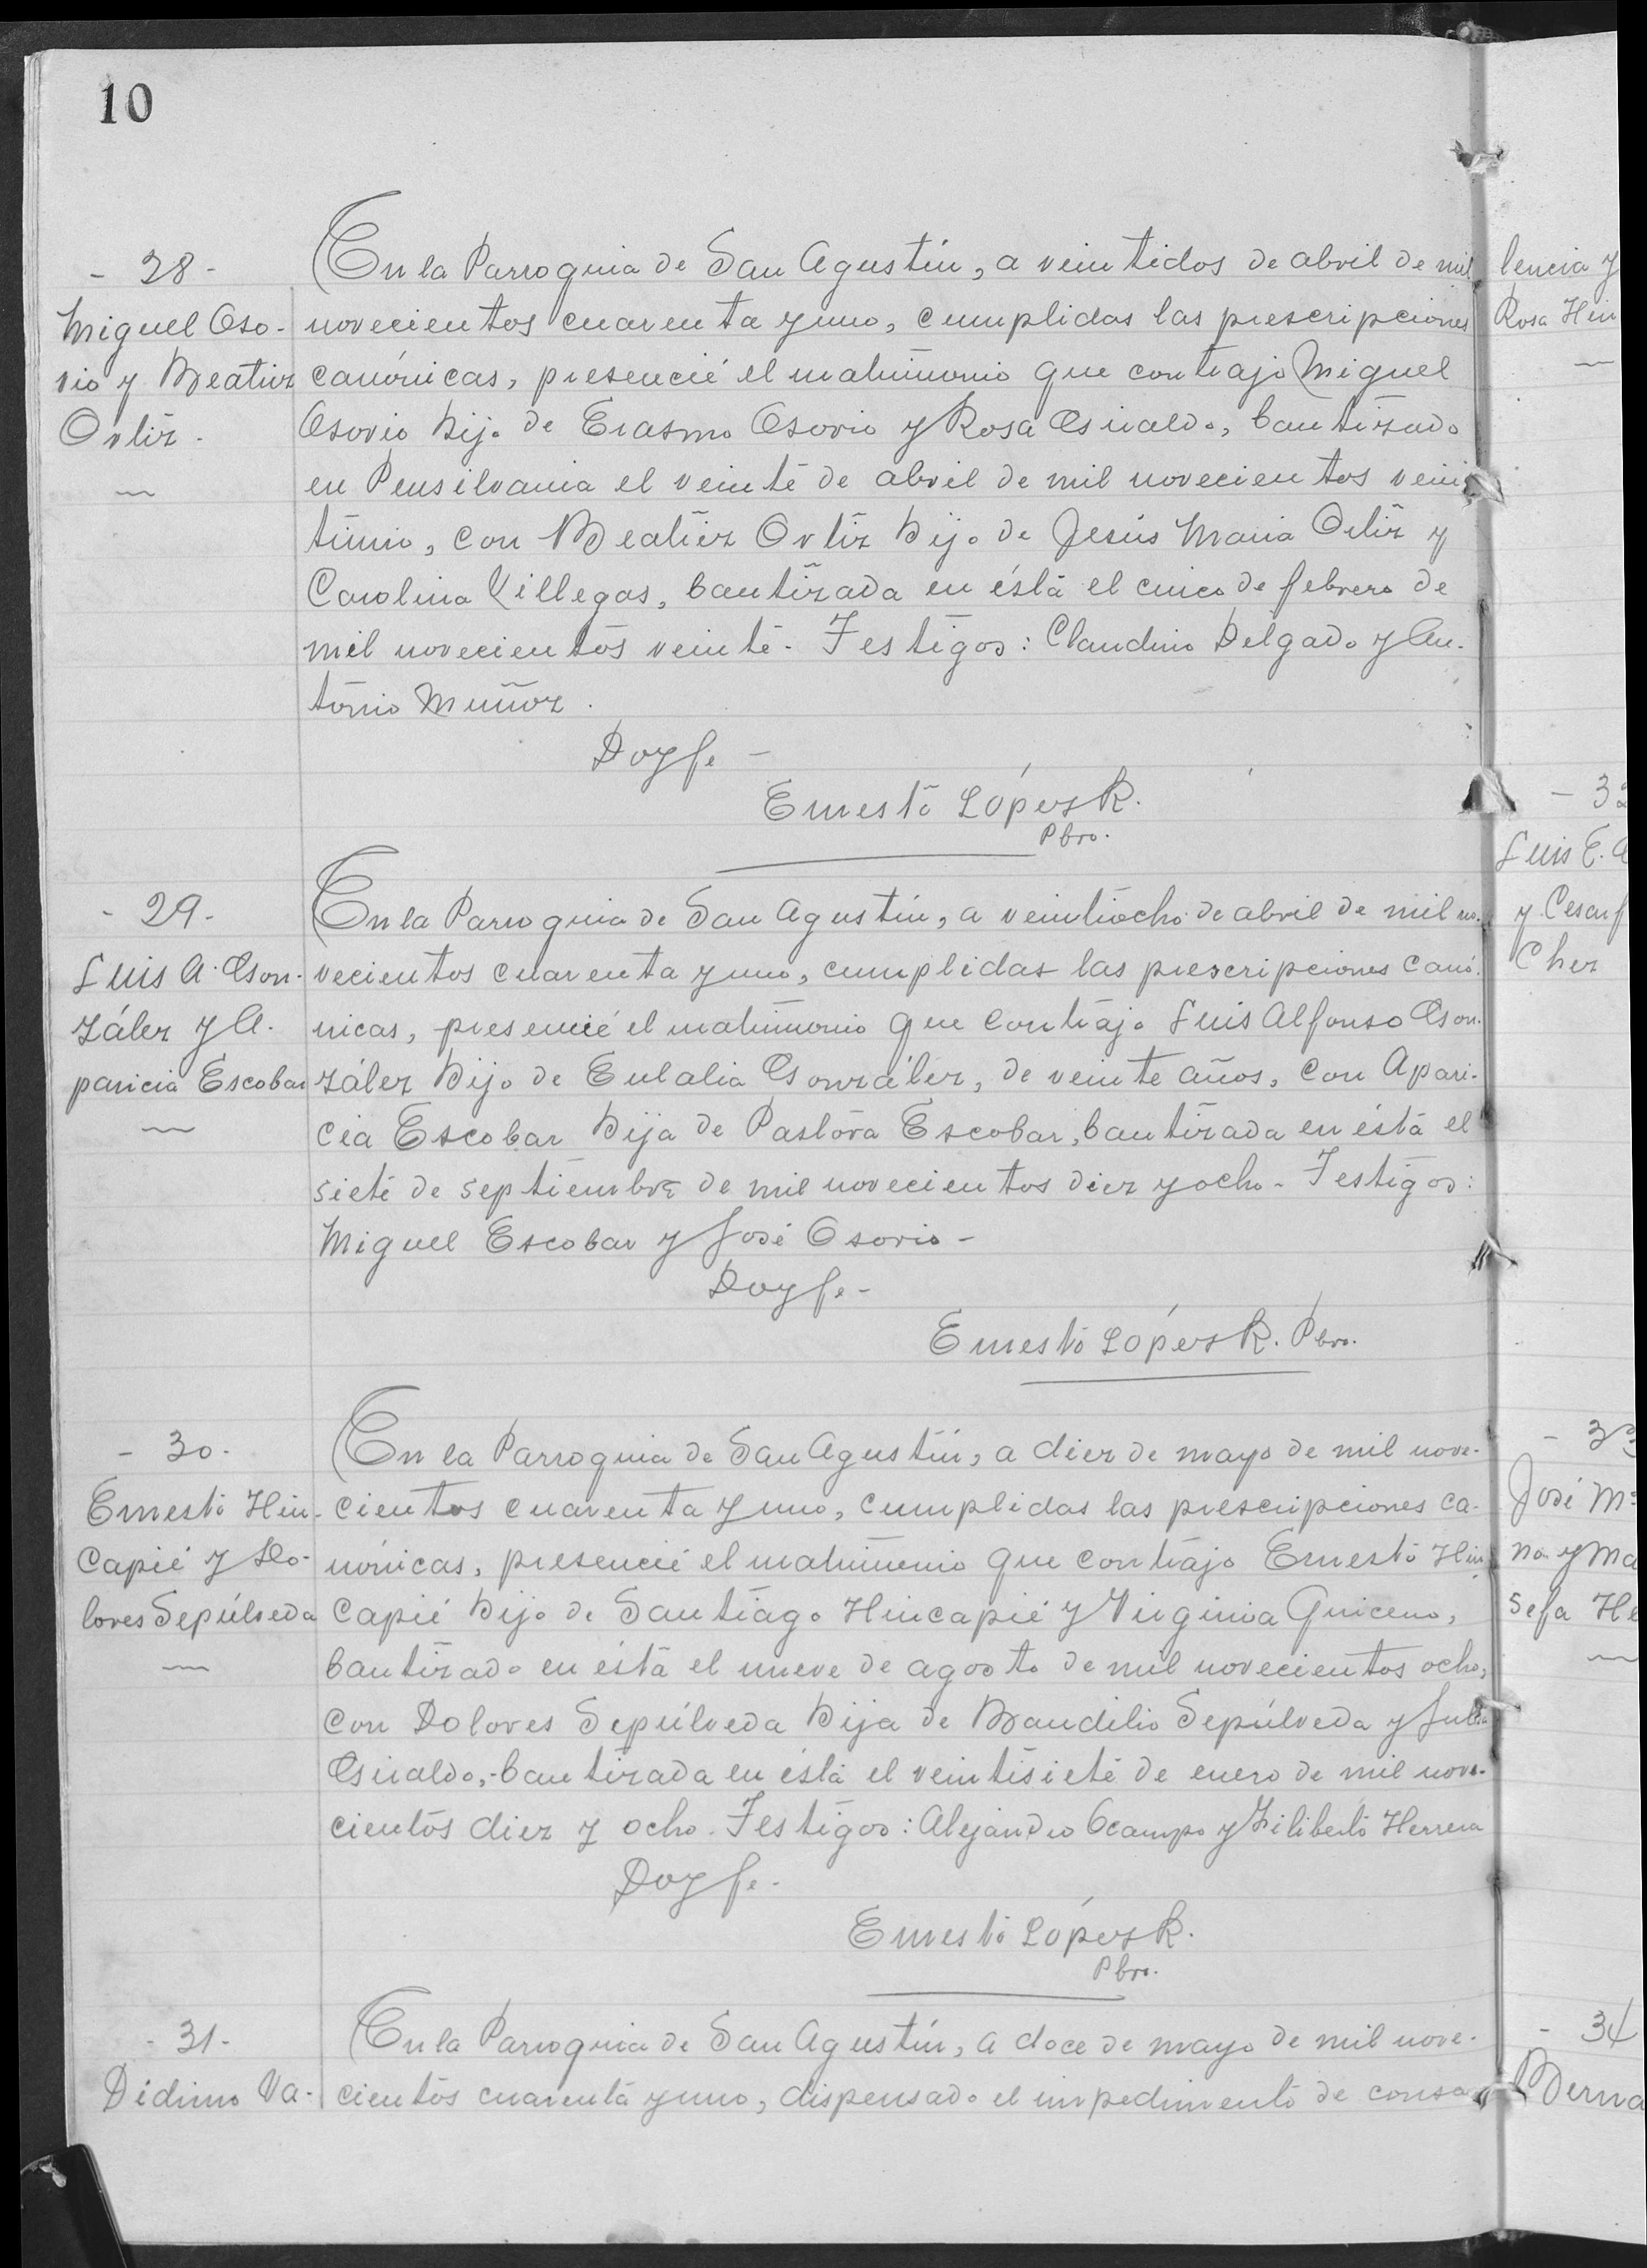 10
- 28 -
Miguel Oso-
rio y Beatriz
Ortiz.
En la Parroquia de San Agustín, a veintidos de abril de mil
novecientos cuarenta y uno, cumplidas las prescripciones
canónicas, presencié el matrimonio que contrajo Miguel
Osorio hijo de Erasmo Osorio y Rosa Giraldo, bautizado
en Pensilvania el veinte de abril de mil novecientos vein
tiuno, con Beatriz Ortiz hijo de Jesús Maria Ortiz y
Carolina Villegas, bautizada en ésta el cinco de febrero de
mil novecientos veinte. Testigos: Claudino Delgado y An-
tonio Muñoz.
Doy fe -
Ernesto López R.
Pbro.
- 29 -
Luis A. Gon-
zález y A-
paricia Escobar
En la Parroquia de San Agustín, a veintiocho de abril de mil no-
vecientos cuarenta y uno, cumplidas las prescripciones canó-
nicas, presencié el matrimonio que contrajo Luis Alfonso Gon-
zález hijo de Eulalia González, de veinte años, con Apari-
cia Escobar hija de Pastora Escobar, bautizada en ésta el
siete de septiembre de mil novecientos diez y ocho - Testigos:
Miguel Escobar y José Osorio -
Doy fe -
Ernesto López R. Pbro.
- 30 -
Ernesto Hin-
capié y Do-
lores Sepúlveda
En la Parroquia de San Agustín, a diez de mayo de mil nove-
cientos cuarenta y uno, cumplidas las prescripciones ca-
nónicas, presencié el matrimonio que contrajo Ernesto Hin
capié hijo de Santiago Hincapié y Virginia Quiceno,
bautizado en ésta el nueve de agosto de mil novecientos ocho,
con Dolores Sepúlveda hija de Baudilio Sepúlveda y Julia
Giraldo, bautizada en ésta el veintisiete de enero de mil nove-
cientos diez y ocho. Testigos: Alejandro Ocampo y Filiberto Herrera
Doy fe -
Ernesto López R.
Pbro.
- 31 -
Didimo Va-
En la Parroquia de San Agustín, a doce de mayo de mil nove-
cientos cuarenta y uno, dispensado el impedimento de consa
lencia y
Rosa Hin
- 32
Luis E. A
y Cesar
Cher
- 33
José Mª
no y Ma
sefa He
- 34
Berna